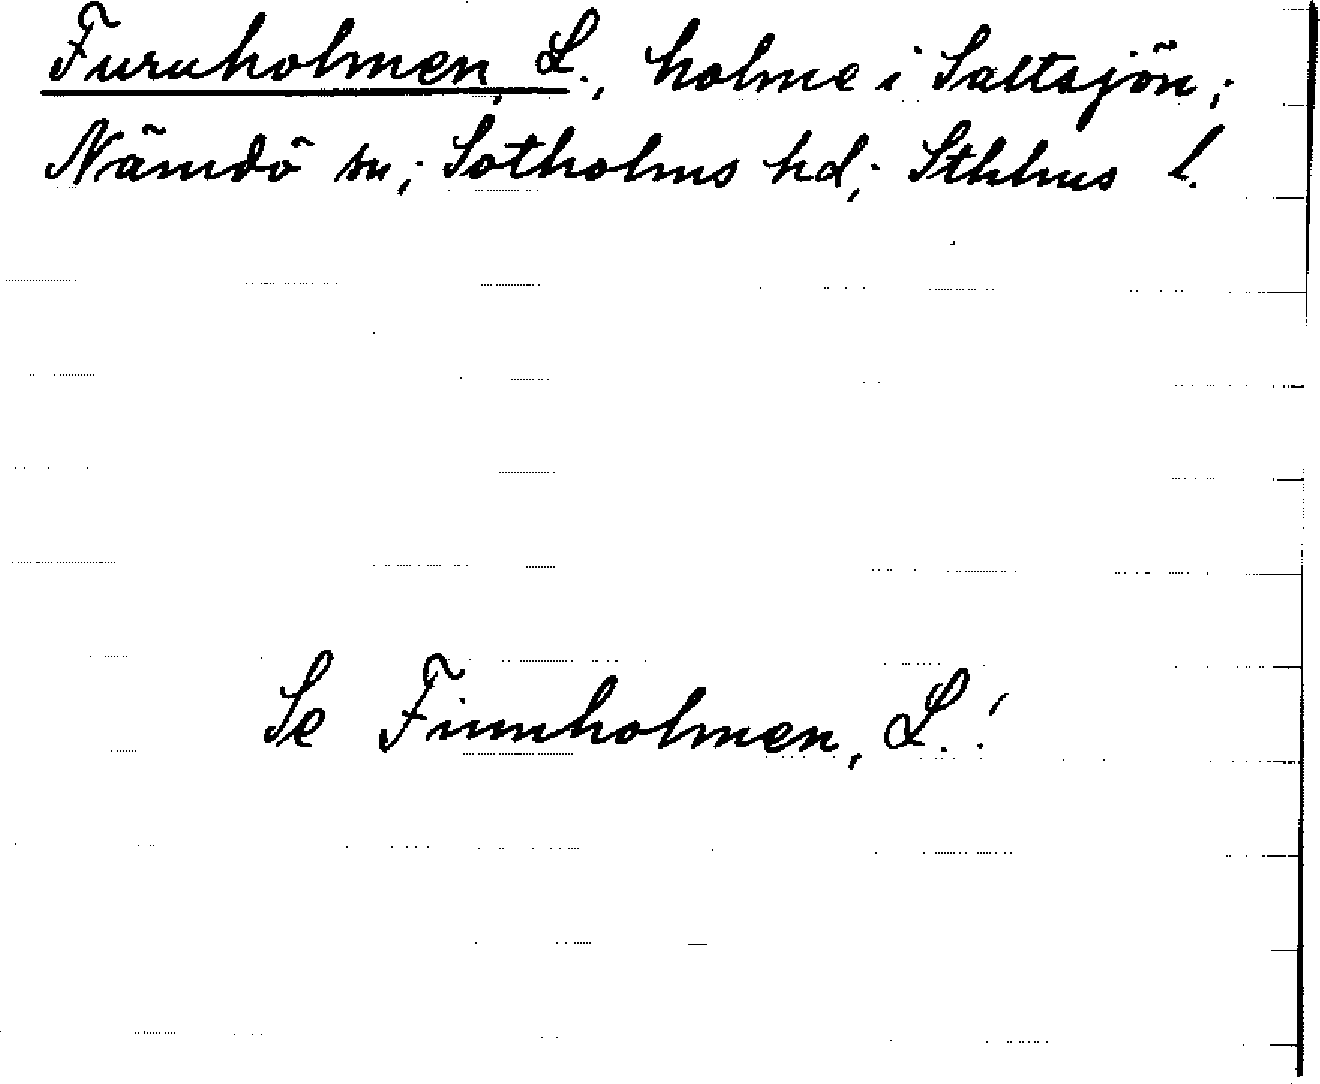 Furuholmen, L., holme i Saltsjön;
Nämdö sn; Sotholms hd; Sthlms l.
Se Finnholmen, L.!